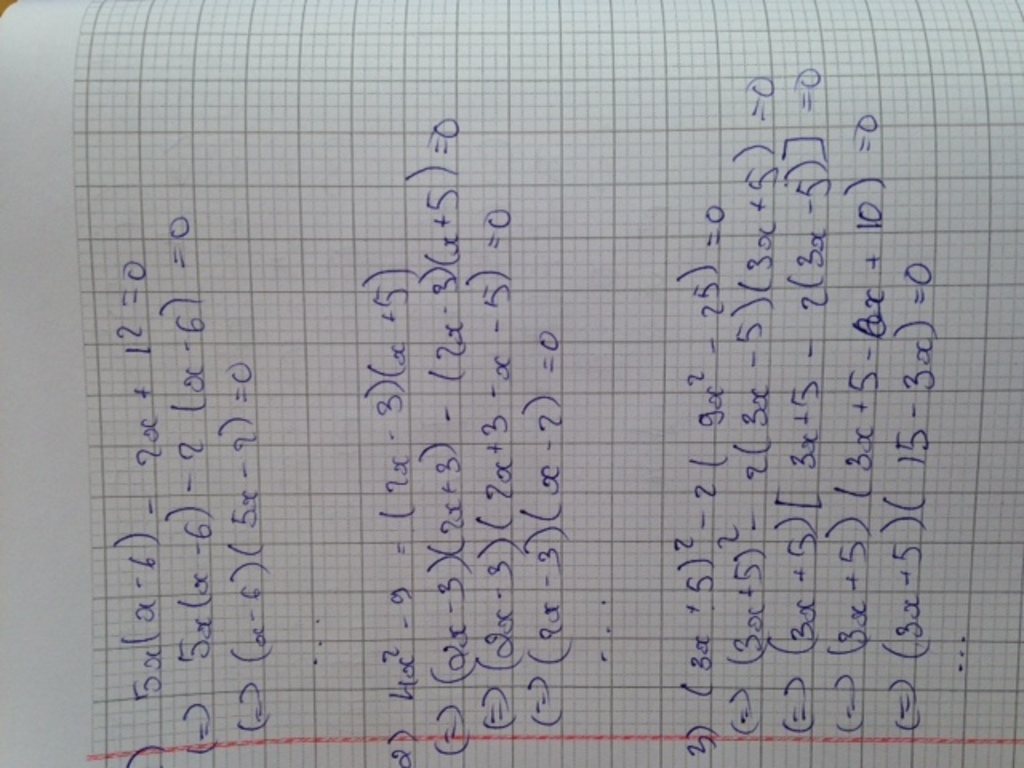 ) 5x(x-6) - 2x + 12 = 0
(=) 5x(x-6) - 2(x-6) = 0
(=) (x-6)(5x-2) = 0
...
2) 4x² - 9 = (2x-3)(x+5)
(=) (2x-3)(2x+3) - (2x-3)(x+5) = 0
(=) (2x-3)(2x+3-x-5) = 0
(=) (2x-3)(x-2) = 0
...
3) (3x+5)² - 2(9x² - 25) = 0
(=) (3x+5)² - 2(3x-5)(3x+5) = 0
(=) (3x+5)[3x+5 - 2(3x-5)] = 0
(=) (3x+5)(3x+5-6x+10) = 0
(=) (3x+5)(15-3x) = 0
...